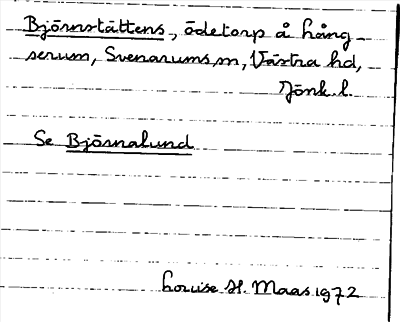 Björnstättens, ödetorp å Lång-
serum, Svenarums sn, Västra hd,
Jönk. l.
Se Björnalund
Louise H. Maas 1972